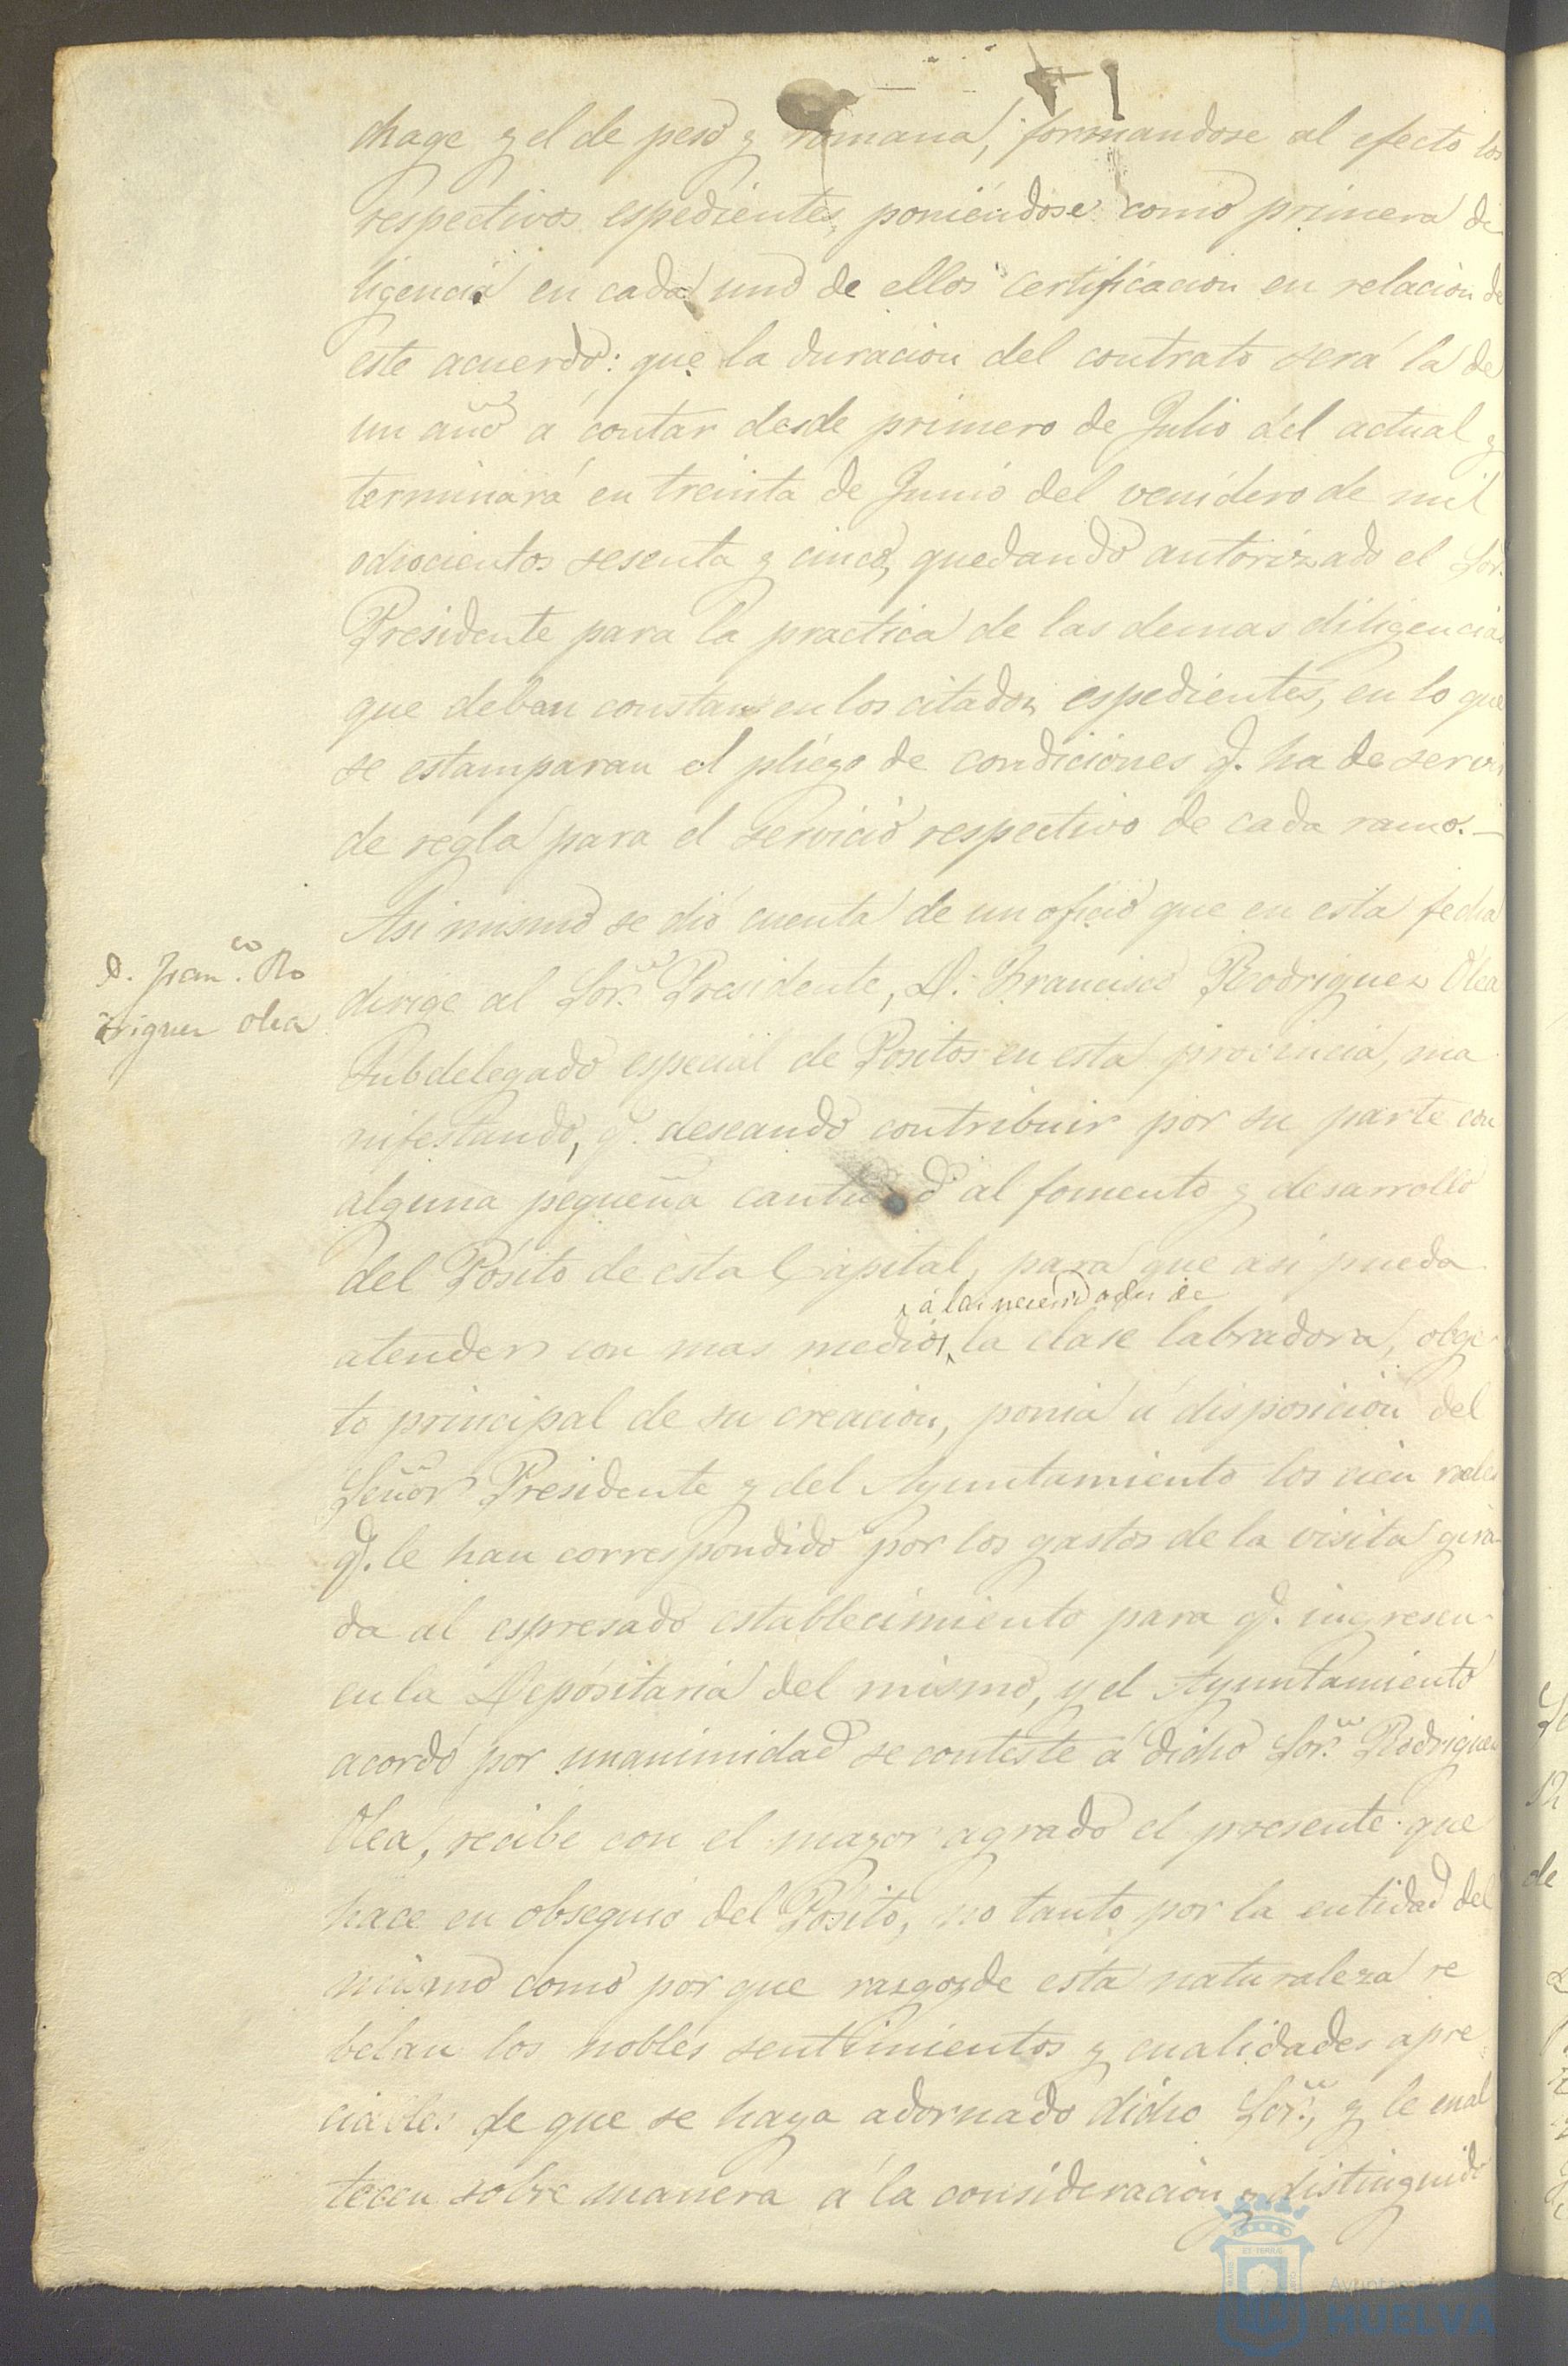 chage y el de peso y romana, formandose al efecto los
respectivos espedientes, poniéndose como primera di
ligencia en cada uno de ellos certificacion en relacion de
este acuerdo: que la duracion del contrato será la de
un año á contar desde primero de Julio del actual y
terminará en treinta de Junio del venidero de mil
ochocientos sesenta y cinco, quedando autorizado el Sor.
Presidente para la practica de las demas diligencias
que deban constar en los citados espedientes, en lo que
se estamparan el pliego de condiciones q. ha de servir
de regla para el servicio respectivo de cada ramo.—
D. Franco. Ro
driguez Olea
Asi mismo se dió cuenta de un oficio que en esta fecha
dirige al Sor. Presidente, D. Francisco Rodriguez Olea
Subdelegado especial de Positos en esta provincia, ma
nifestando, q. deseando contribuir por su parte con
alguna pequeña cantidad al fomento y desarrollo
del Pósito de esta Capital, para que asi pueda
á las necesidades de
atender con mas medios la clase labradora, obge
to principal de su creacion, ponia á disposicion del
Señor Presidente y del Ayuntamiento los cien reales
q. le han correspondido por los gastos de la visita gira
da al espresado establecimiento para q. ingresen
en la Depósitaria del mismo, y el Ayuntamiento
acordó por unanimidad se conteste á dicho Sor. Rodriguez
Olea, recibe con el mayor agrado el presente que
hace en obsequio del Pósito, no tanto por la entidad del
mismo como por que rasgos de esta naturaleza re
belan los nobles sentimientos y cualidades apre
ciables de que se haya adornado dicho Sor., y le enal
tecen sobre manera á la consideracion y distinguido
Ayuntamiento
HUELVA